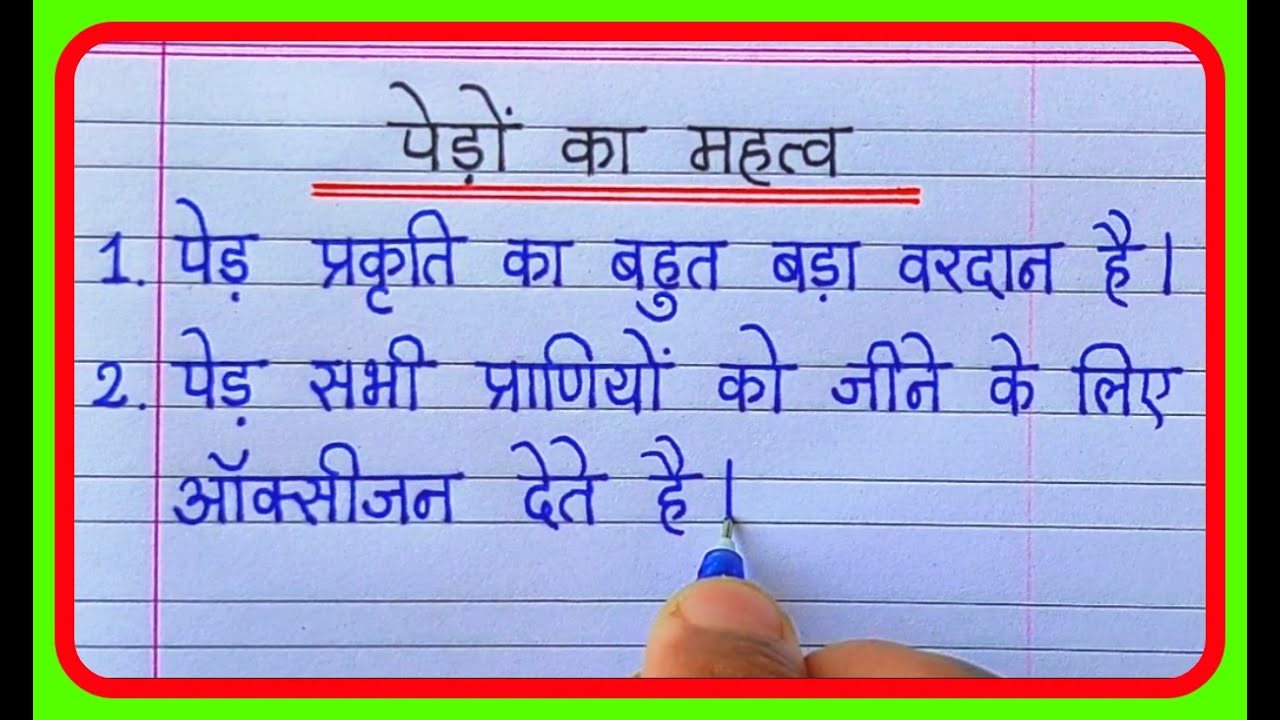 पेड़ों का महत्व
1. पेड़ प्रकृति का बहुत बड़ा वरदान है।
2. पेड़ सभी प्राणियों को जीने के लिए
ऑक्सीजन देते है।